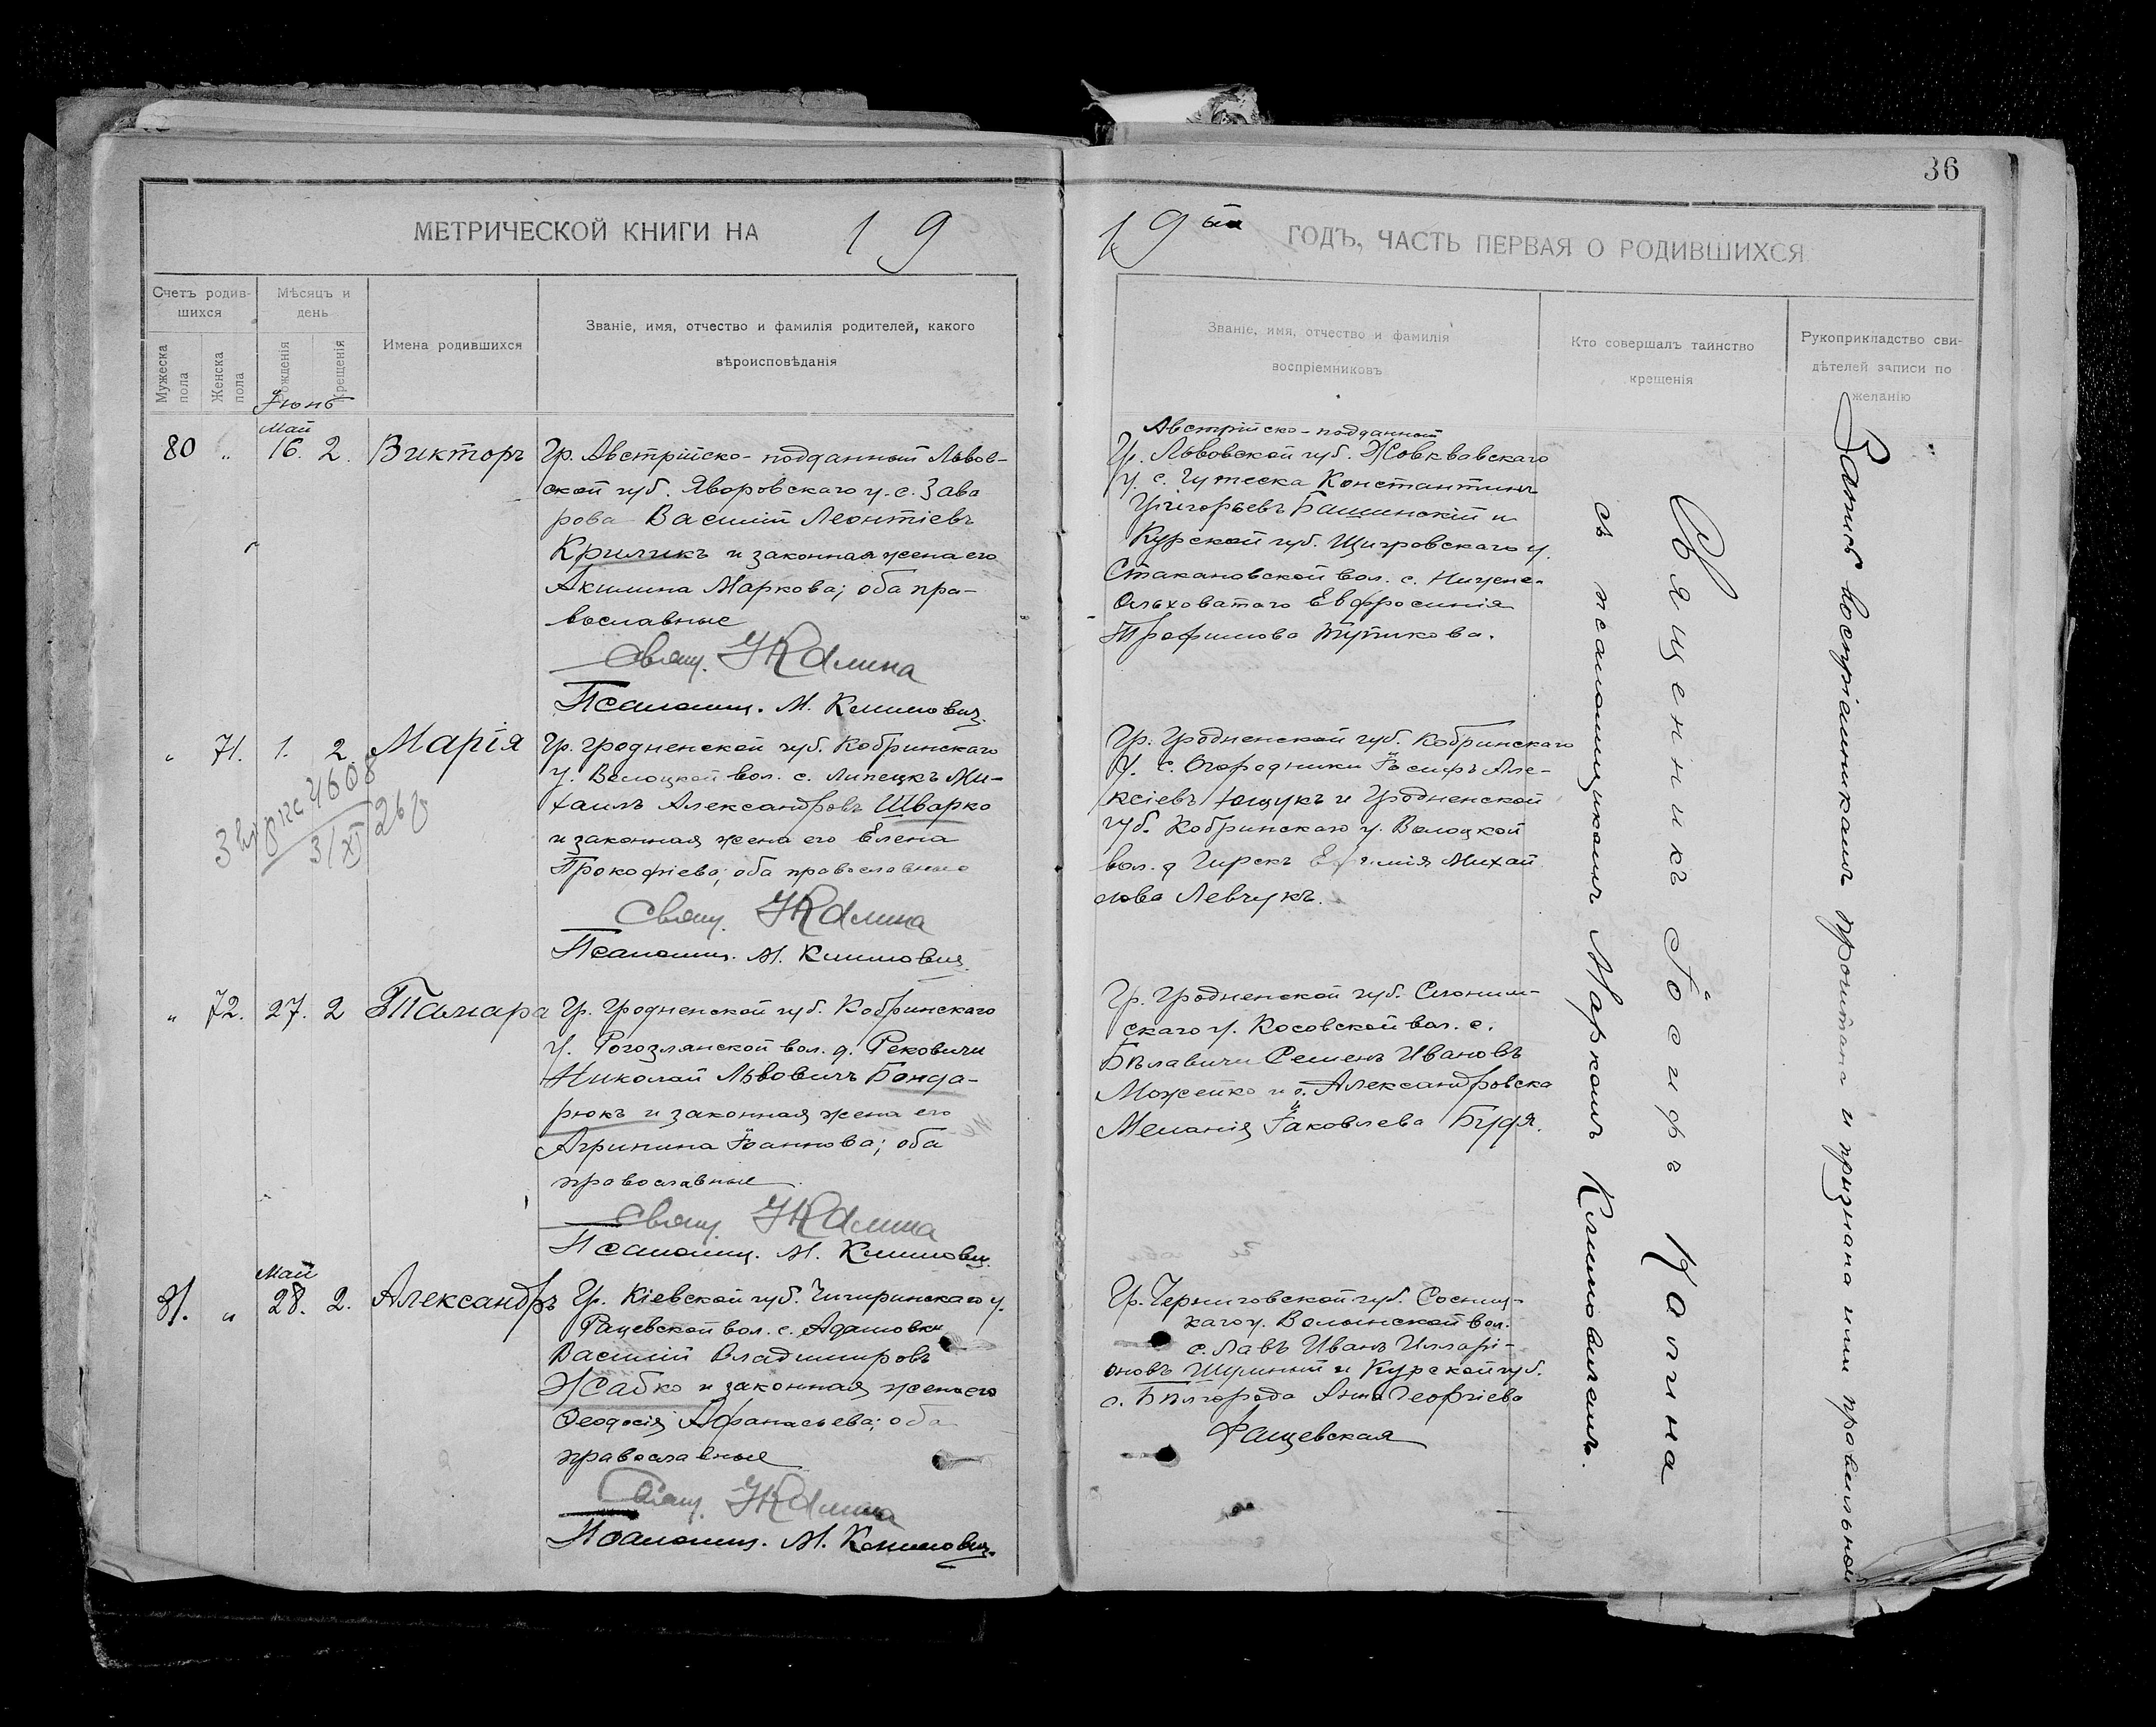 36
МЕТРИЧЕСКОЙ КНИГИ НА 19
19ый ГОДЪ, ЧАСТЬ ПЕРВАЯ О РОДИВШИХСЯ
Счетъ родив-
шихся
Мужеска пола
Женска пола
Мѣсяцъ и
день
Рожденія
Крещенія
Имена родившихся
Званіе, имя, отчество и фамилія родителей, какого
вѣроисповѣданія
Званіе, имя, отчество и фамилія
воспріемниковъ
Кто совершалъ таинство
крещенія
Рукоприкладство сви-
дѣтелей записи по
желанію
Іюнь
Май
80 " 16. 2. Викторъ
Гр. Австрійско-подданный Львов-
ской губ. Яворовскаго у. с. Зава
рова Василій Леонтіевъ
Криликъ и законная жена его
Акилина Маркова; оба пра-
вославные
Свящ. І Калина
Псаломщ. М. Климович.
Австрійско-подданный
Гр. Львовской губ. Жовквавскаго
у. с. Гутеска Константинъ
Григорьевъ Башинскій и
Курской губ. Щигровскаго у.
Стакановской вол. с. Нижне-
Ольховатаго Евфросинія
Трофимова Тупикова.
" 71. 1. 2. Марія
4608
3/XI 26
Гр. Гродненской губ. Кобринскаго
у. вол. с. Липецкъ Ми-
хаилъ Александровъ Шварко
и законная жена его Елена
Прокофіева; оба православные
Свящ. І Калина
Псаломщ. М. Климович.
Гр. Гродненской губ. Кобринскаго
у. с. Огородники Іосифъ Але-
ксіевъ Ющукъ и Гродненской
губ. Кобринскаго у.
вол. д Гирскъ Михай
лова Левчукъ.
" 72. 27. 2 Тамара
Гр. Гродненской губ. Кобринскаго
у. Рогозлянской вол. д. Рековичи
Николай Львовичъ Бонда-
рюкъ и законная жена его
Агрипина Іоаннова; оба
православные
Свящ. І Калина
Псаломщ. М. Климович.
Гр. Гродненской губ. Слоним-
скаго у. Косовской вол. с.
Бѣлавичи Семенъ Ивановъ
Можейко и с. Александровска
Меланія Іаковлева Будя.
Май
81. " 28. 2. Александръ
Гр. Кіевской губ. Чигиринскаго у.
Рацевской вол. с. Адамовки
Василій Владимировъ
Жабко и законная жена его
Феодосія Афанасьева; оба
православные
Свящ. І Калина
Псаломщ. М. Климович.
Гр. Черниговской губ. Сосниц-
каго у. Волынской вол.
с. Лавъ Иванъ Илларі-
оновъ Шумный и Курской губ.
г. Бѣлгорода Анна Георгіева
Ращевская
Священникъ Іосифъ Калина
съ псаломщикомъ Маркомъ Климовичемъ.
Запись воспріемникамъ прочитана и признана ими правильной